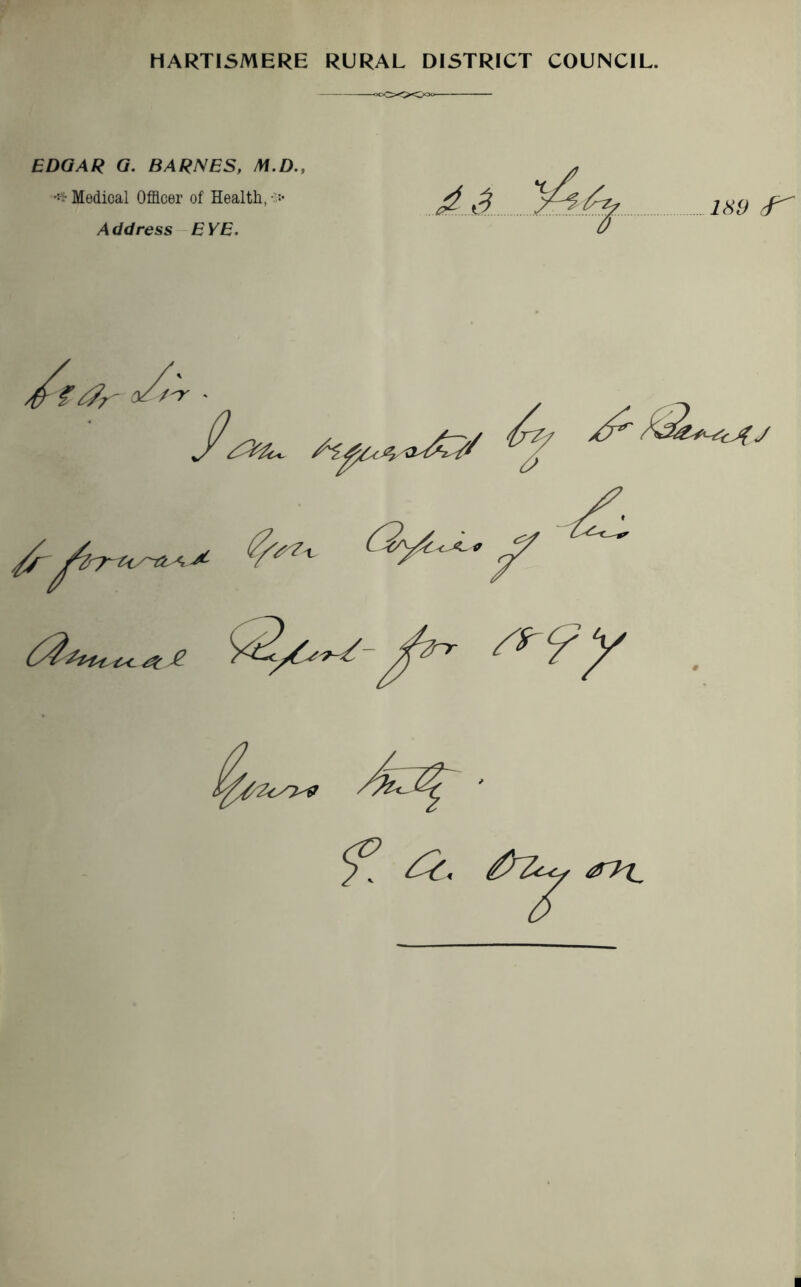 HARTISMERE RURAL DISTRICT COUNCIL.
EDGAR G. BARNES, M.D.,
Medical Officer of Health,
Address EYE.
23 Feby 1898
Dear Sir.
I am requested by Dr Barnes
to forward you Copies of his
Annual Report for 1897.
Yours truly.